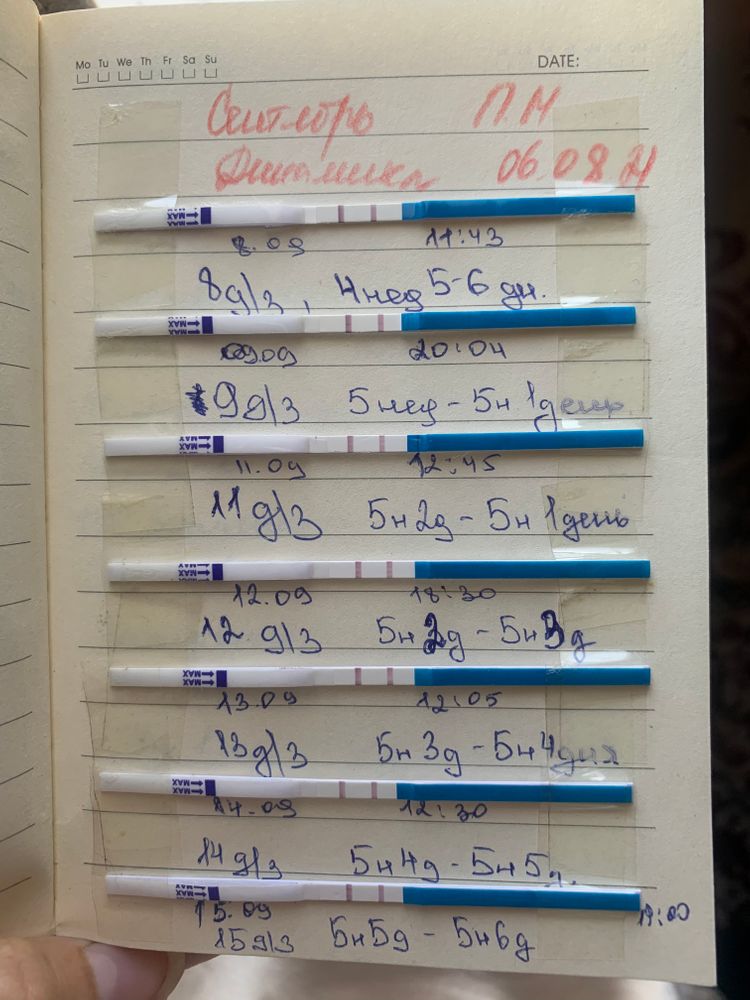 Mo Tu We Th Fr Sa Su
DATE:
Сентябрь П.М
Динамика 06.08 21
MAX
8.09 11:43
8д/з, 4нед 5-6 дн.
MAX
09.09 20:04
9д/з 5нед - 5н 1день.
MAX
11.09 12:45
11 д/з 5н 2д - 5н 1 день
MAX
12.09 18:30
12. д/з 5н 2д - 5н 3д
MAX
13.09 12:05
13д/з 5н 3д - 5н 4дня
MAX
14.09 12:30
14 д/з 5н 4д - 5н 5д.
MAX
15.09
15д/з 5н 5д - 5н 6д